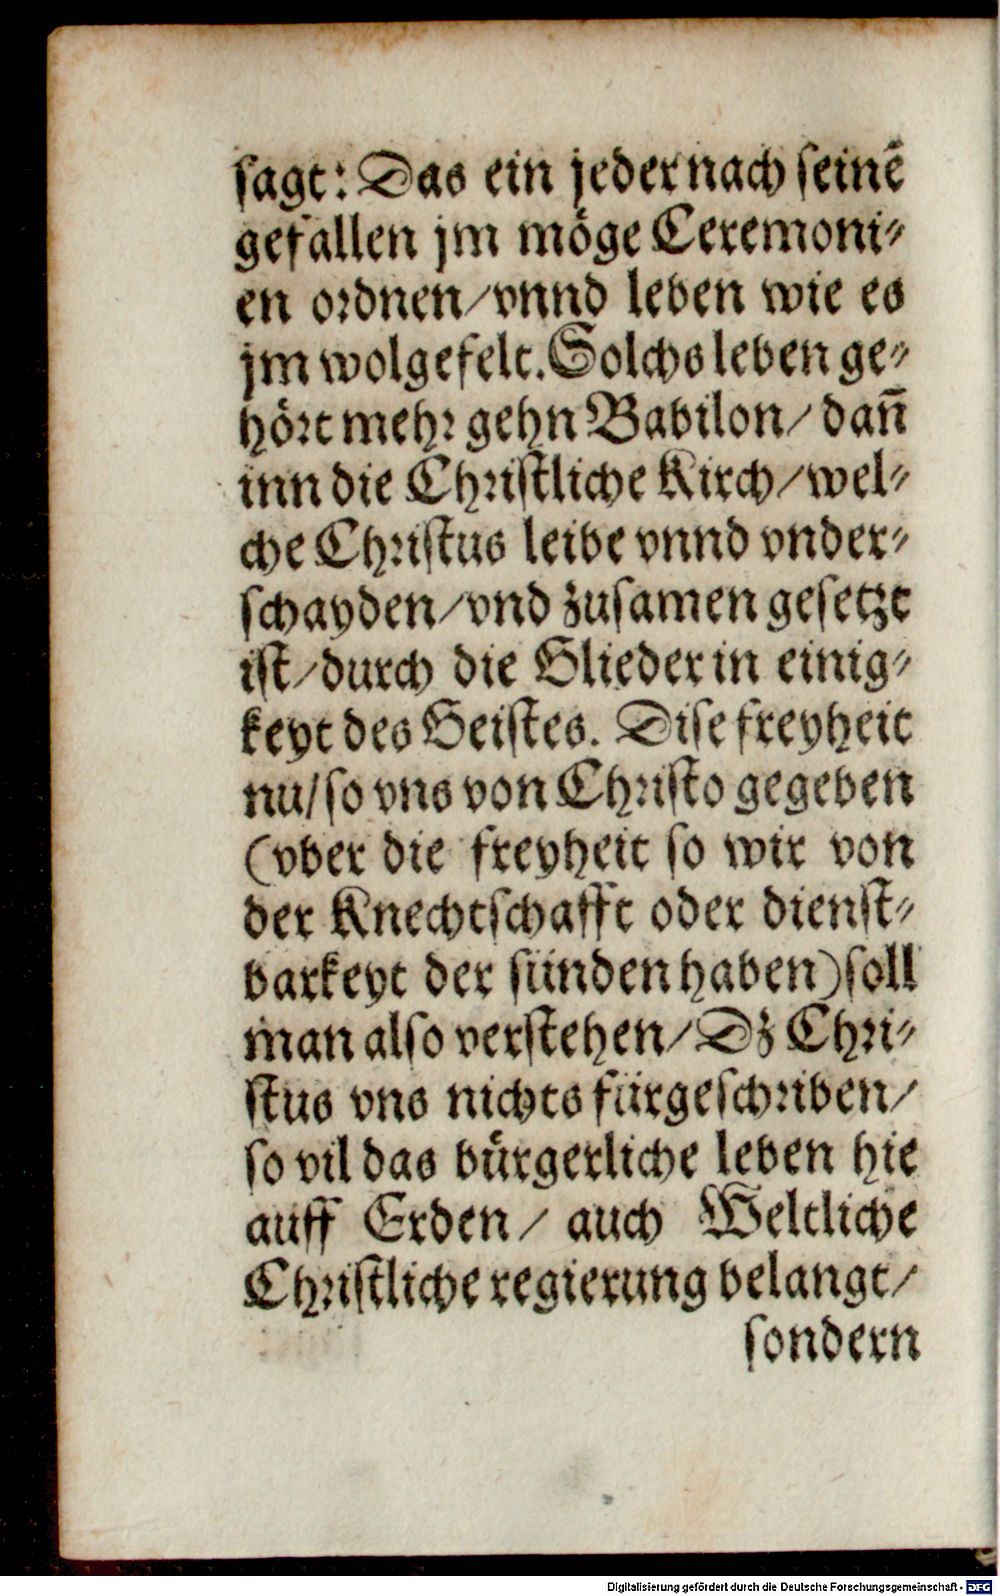 sagt: Das ein jeder nach seinē
gefallen jm möge Ceremoni⸗
en ordnen/vnnd leben wie es
jm wolgefelt. Solchs leben ge⸗
hört mehr gehn Babilon/ dañ
inn die Christliche Kirch/wel⸗
che Christus leibe vnnd vnder⸗
schayden/vnd zusamen gesetzt
ist/durch die Glieder in einig⸗
keyt des Geistes. Dise freyheit
nu/so vns von Christo gegeben
(vber die freyheit so wir von
der Knechtschafft oder dienst⸗
barkeyt der sünden haben) soll
man also verstehen/ Dz Chri⸗
stus vns nichts fürgeschriben/
so vil das bürgerliche leben hie
auff Erden/ auch Weltliche
Christliche regierung belangt/
sondern
Digitalisierung gefördert durch die Deutsche Forschungsgemeinschaft - DFG